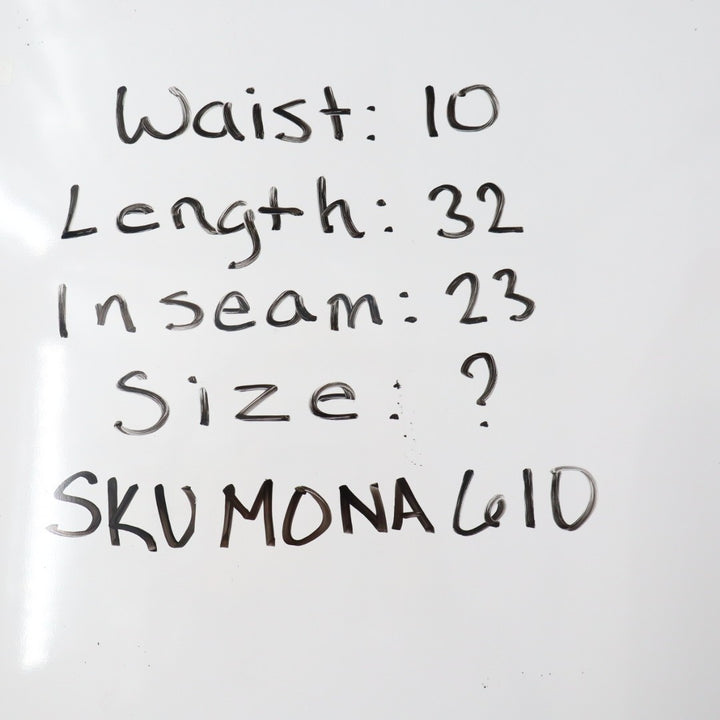 Waist: 10
Length: 32
Inseam: 23
Size: ?
SKU MONA 610